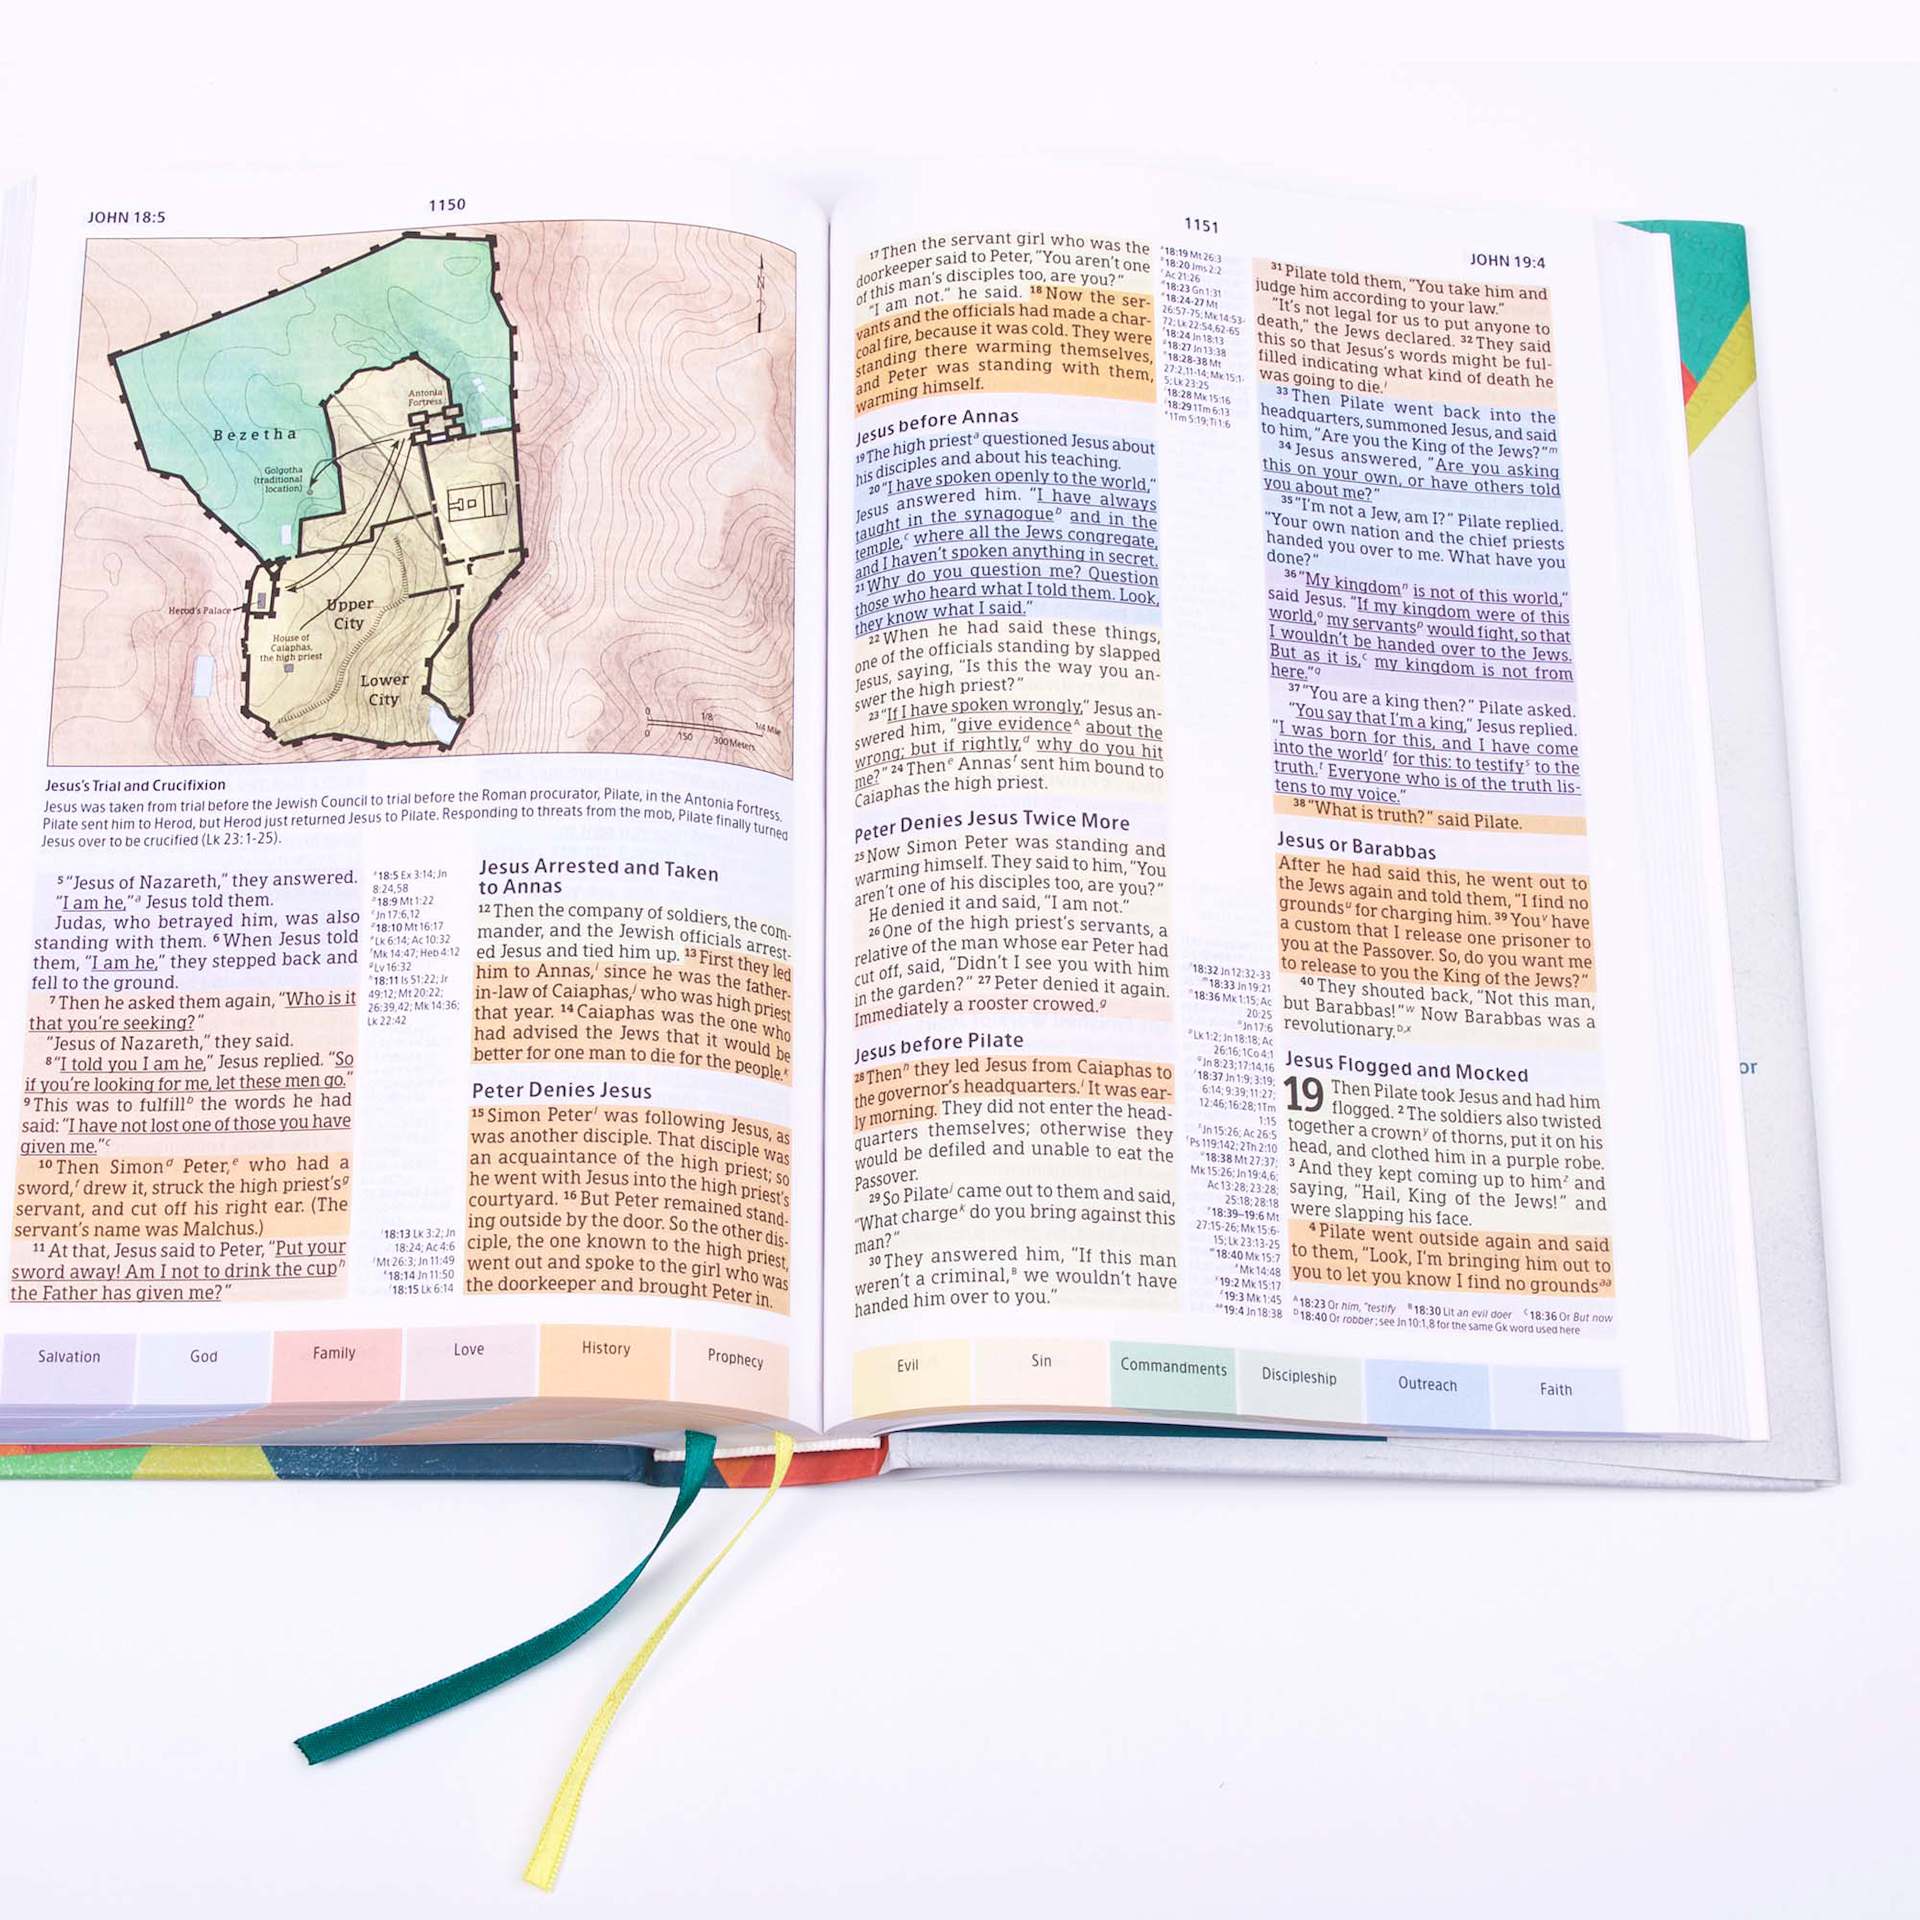 JOHN 18:5
1150
N
Bezetha
Antonia
Fortress
Golgotha
(traditional
location)
Herod's Palace
Upper
City
House of
Caiaphas,
the high priest
Lower
City
0 1/8 1/4 Mile
0 150 300 Meters
Jesus's Trial and Crucifixion
Jesus was taken from trial before the Jewish Council to trial before the Roman procurator, Pilate, in the Antonia Fortress.
Pilate sent him to Herod, but Herod just returned Jesus to Pilate. Responding to threats from the mob, Pilate finally turned
Jesus over to be crucified (Lk 23:1-25).
5 "Jesus of Nazareth," they answered.
"I am he,"a Jesus told them.
Judas, who betrayed him, was also
standing with them. 6 When Jesus told
them, "I am he," they stepped back and
fell to the ground.
7 Then he asked them again, "Who is it
that you're seeking?"
"Jesus of Nazareth," they said.
8 "I told you I am he," Jesus replied. "So
if you're looking for me, let these men go."
9 This was to fulfillb the words he had
said: "I have not lost one of those you have
given me."c
10 Then Simond Peter,e who had a
sword,f drew it, struck the high priest'sg
servant, and cut off his right ear. (The
servant's name was Malchus.)
11 At that, Jesus said to Peter, "Put your
sword away! Am I not to drink the cuph
the Father has given me?"
a18:5 Ex 3:14; Jn
8:24,58
b18:9 Mt 1:22
cJn 17:6,12
d18:10 Mt 16:17
eLk 6:14; Ac 10:32
fMk 14:47; Heb 4:12
gLv 16:32
h18:11 Is 51:22; Jr
49:12; Mt 20:22;
26:39,42; Mk 14:36;
Lk 22:42
i18:13 Lk 3:2; Jn
18:24; Ac 4:6
jMt 26:3; Jn 11:49
k18:14 Jn 11:50
l18:15 Lk 6:14
Jesus Arrested and Taken
to Annas
12 Then the company of soldiers, the com-
mander, and the Jewish officials arrest-
ed Jesus and tied him up. 13 First they led
him to Annas,i since he was the father-
in-law of Caiaphas,j who was high priest
that year. 14 Caiaphas was the one who
had advised the Jews that it would be
better for one man to die for the people.k
Peter Denies Jesus
15 Simon Peterl was following Jesus, as
was another disciple. That disciple was
an acquaintance of the high priest; so
he went with Jesus into the high priest's
courtyard. 16 But Peter remained stand-
ing outside by the door. So the other dis-
ciple, the one known to the high priest,
went out and spoke to the girl who was
the doorkeeper and brought Peter in.
Salvation God Family Love History Prophecy
1151
JOHN 19:4
17 Then the servant girl who was the
doorkeeper said to Peter, "You aren't one
of this man's disciples too, are you?"
"I am not." he said. 18 Now the ser-
vants and the officials had made a char-
coal fire, because it was cold. They were
standing there warming themselves,
and Peter was standing with them,
warming himself.
Jesus before Annas
19 The high priesta questioned Jesus about
his disciples and about his teaching.
20 "I have spoken openly to the world,"
Jesus answered him. "I have always
taught in the synagogueb and in the
temple,c where all the Jews congregate,
and I haven't spoken anything in secret.
21 Why do you question me? Question
those who heard what I told them. Look,
they know what I said."
22 When he had said these things,
one of the officials standing by slapped
Jesus, saying, "Is this the way you an-
swer the high priest?"
23 "If I have spoken wrongly," Jesus an-
swered him, "give evidenceA about the
wrong; but if rightly,d why do you hit
me?" 24 Thene Annasf sent him bound to
Caiaphas the high priest.
Peter Denies Jesus Twice More
25 Now Simon Peter was standing and
warming himself. They said to him, "You
aren't one of his disciples too, are you?"
He denied it and said, "I am not."
26 One of the high priest's servants, a
relative of the man whose ear Peter had
cut off, said, "Didn't I see you with him
in the garden?" 27 Peter denied it again.
Immediately a rooster crowed.g
Jesus before Pilate
28 Thenh they led Jesus from Caiaphas to
the governor's headquarters.i It was ear-
ly morning. They did not enter the head-
quarters themselves; otherwise they
would be defiled and unable to eat the
Passover.
29 So Pilatej came out to them and said,
"What chargek do you bring against this
man?"
30 They answered him, "If this man
weren't a criminal,B we wouldn't have
handed him over to you."
a18:19 Mt 26:3
b18:20 Jms 2:2
cAc 21:26
d18:23 Gn 1:31
e18:24-27 Mt
26:57-75; Mk 14:53-
72; Lk 22:54,62-65
f18:24 Jn 18:13
g18:27 Jn 13:38
h18:28-38 Mt
27:2,11-14; Mk 15:1-
5; Lk 23:25
i18:28 Mk 15:16
j18:29 1Tm 6:13
k1Tm 5:19; Ti 1:6
l18:32 Jn 12:32-33
m18:33 Jn 19:21
n18:36 Mk 1:15; Ac
20:25
oJn 17:6
pLk 1:2; Jn 18:18; Ac
26:16; 1Co 4:1
qJn 8:23; 17:14,16
r18:37 Jn 1:9; 3:19;
6:14; 9:39; 11:27;
12:46; 16:28; 1Tm
1:15
sJn 15:26; Ac 26:5
tPs 119:142; 2Th 2:10
u18:38 Mt 27:37;
Mk 15:26; Jn 19:4,6;
Ac 13:28; 23:28;
25:18; 28:18
v18:39–19:6 Mt
27:15-26; Mk 15:6-
15; Lk 23:13-25
w18:40 Mk 15:7
xMk 14:48
y19:2 Mk 15:17
z19:3 Mk 1:45
aa19:4 Jn 18:38
31 Pilate told them, "You take him and
judge him according to your law."
"It's not legal for us to put anyone to
death," the Jews declared. 32 They said
this so that Jesus's words might be ful-
filled indicating what kind of death he
was going to die.l
33 Then Pilate went back into the
headquarters, summoned Jesus, and said
to him, "Are you the King of the Jews?"m
34 Jesus answered, "Are you asking
this on your own, or have others told
you about me?"
35 "I'm not a Jew, am I?" Pilate replied.
"Your own nation and the chief priests
handed you over to me. What have you
done?"
36 "My kingdomn is not of this world,"
said Jesus. "If my kingdom were of this
world,o my servantsp would fight, so that
I wouldn't be handed over to the Jews.
But as it is,C my kingdom is not from
here."q
37 "You are a king then?" Pilate asked.
"You say that I'm a king," Jesus replied.
"I was born for this, and I have come
into the worldr for this: to testifys to the
truth.t Everyone who is of the truth lis-
tens to my voice."
38 "What is truth?" said Pilate.
Jesus or Barabbas
After he had said this, he went out to
the Jews again and told them, "I find no
groundsu for charging him. 39 Youv have
a custom that I release one prisoner to
you at the Passover. So, do you want me
to release to you the King of the Jews?"
40 They shouted back, "Not this man,
but Barabbas!"w Now Barabbas was a
revolutionary.D,x
Jesus Flogged and Mocked
19 Then Pilate took Jesus and had him
flogged. 2 The soldiers also twisted
together a crowny of thorns, put it on his
head, and clothed him in a purple robe.
3 And they kept coming up to himz and
saying, "Hail, King of the Jews!" and
were slapping his face.
4 Pilate went outside again and said
to them, "Look, I'm bringing him out to
you to let you know I find no groundsaa
A18:23 Or him, "testify B18:30 Lit an evil doer C18:36 Or But now
D18:40 Or robber; see Jn 10:1,8 for the same Gk word used here
Evil Sin Commandments Discipleship Outreach Faith
or